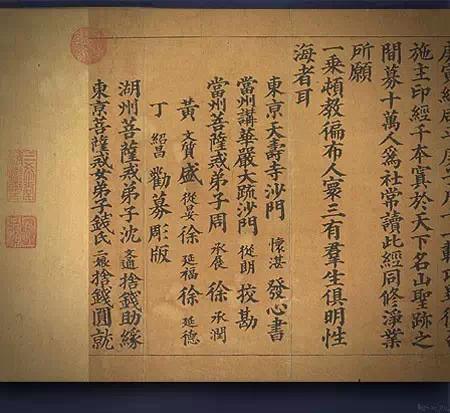 施主印經千本寘於天下名山聖跡之
間募十萬人爲社常讀此經同修淨業
所願
一乘頓教徧布人寰三有羣生俱明性
海者耳
東京天壽寺沙門 懷湛 發心書
當州講華嚴大疏沙門 從朗 挍勘
當州菩薩戒弟子周 承展 徐 承潤
黃 文質 盛 從旻 徐 延福 徐 延德
丁 紹昌 勸募彫版
湖州菩薩戒弟子沈 捨錢助緣
東京菩薩戒女弟子錢氏 捨錢圓就